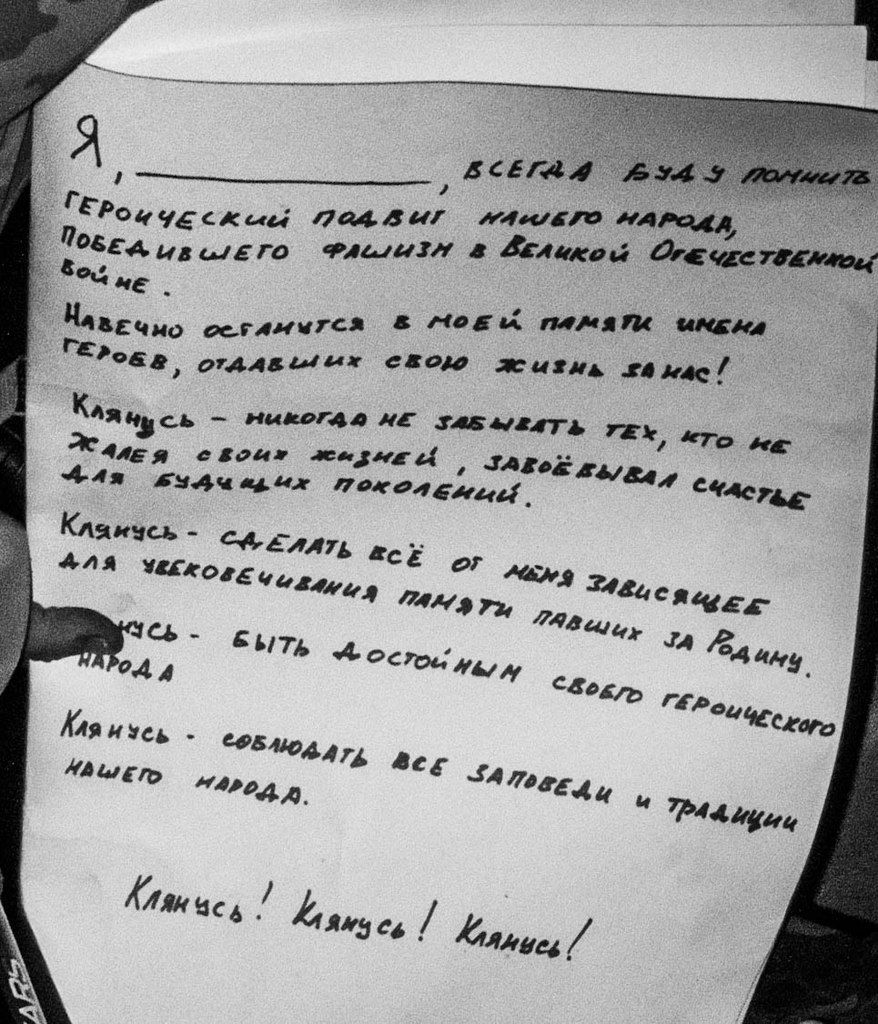 Я, ____________, ВСЕГДА БУДУ ПОМНИТЬ
ГЕРОИЧЕСКИЙ ПОДВИГ НАШЕГО НАРОДА,
ПОБЕДИВШЕГО ФАШИЗМ В ВЕЛИКОЙ ОТЕЧЕСТВЕННОЙ
ВОЙНЕ.
НАВЕЧНО ОСТАНУТСЯ В МОЕЙ ПАМЯТИ ИМЕНА
ГЕРОЕВ, ОТДАВШИХ СВОЮ ЖИЗНЬ ЗА НАС!
КЛЯНУСЬ - НИКОГДА НЕ ЗАБЫВАТЬ ТЕХ, КТО НЕ
ЖАЛЕЯ СВОИХ ЖИЗНЕЙ, ЗАВОЁВЫВАЛ СЧАСТЬЕ
ДЛЯ БУДУЩИХ ПОКОЛЕНИЙ.
КЛЯНУСЬ - СДЕЛАТЬ ВСЁ ОТ МЕНЯ ЗАВИСЯЩЕЕ
ДЛЯ УВЕКОВЕЧИВАНИЯ ПАМЯТИ ПАВШИХ ЗА РОДИНУ.
НУСЬ - БЫТЬ ДОСТОЙНЫМ СВОЕГО ГЕРОИЧЕСКОГО
НАРОДА
КЛЯНУСЬ - СОБЛЮДАТЬ ВСЕ ЗАПОВЕДИ И ТРАДИЦИИ
НАШЕГО НАРОДА.
КЛЯНУСЬ! КЛЯНУСЬ! КЛЯНУСЬ!
ARS